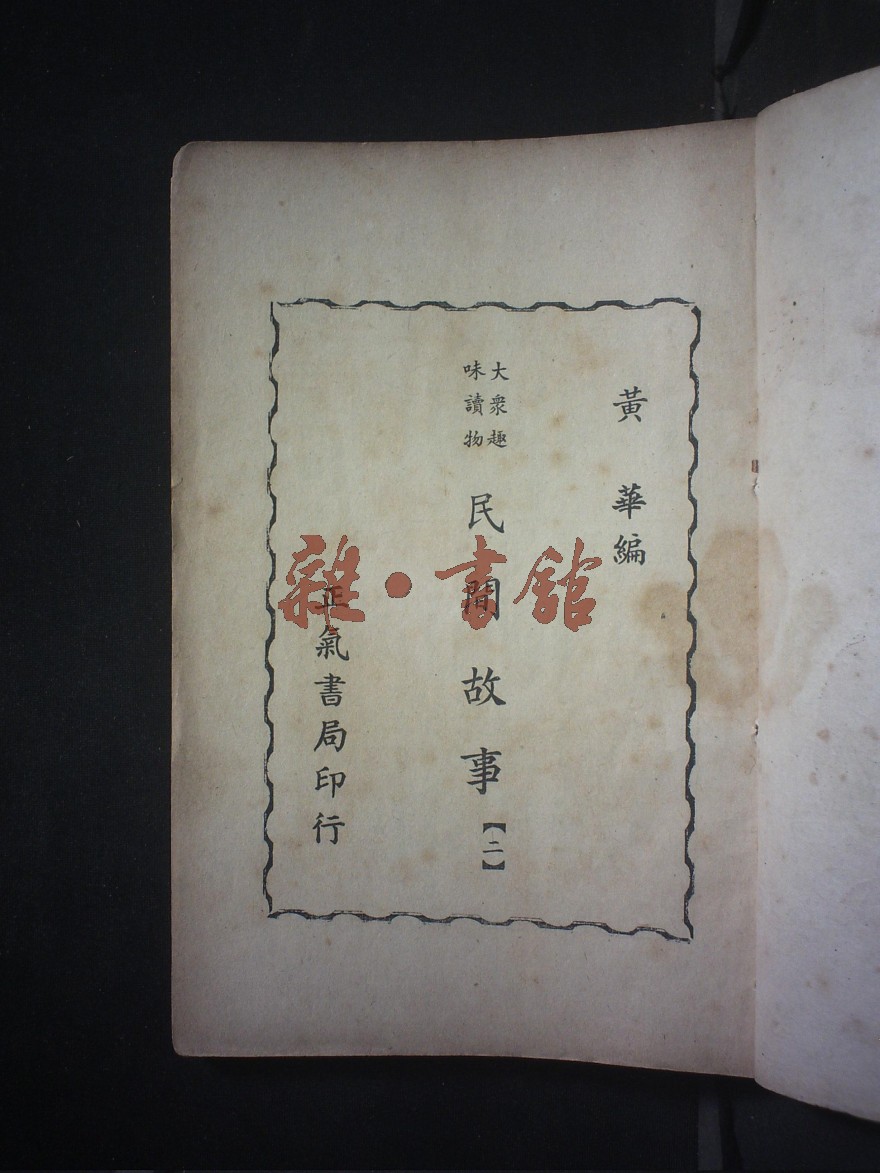 黃華編
大衆趣
味讀物
民間故事【二】
正氣書局印行
雜·書館